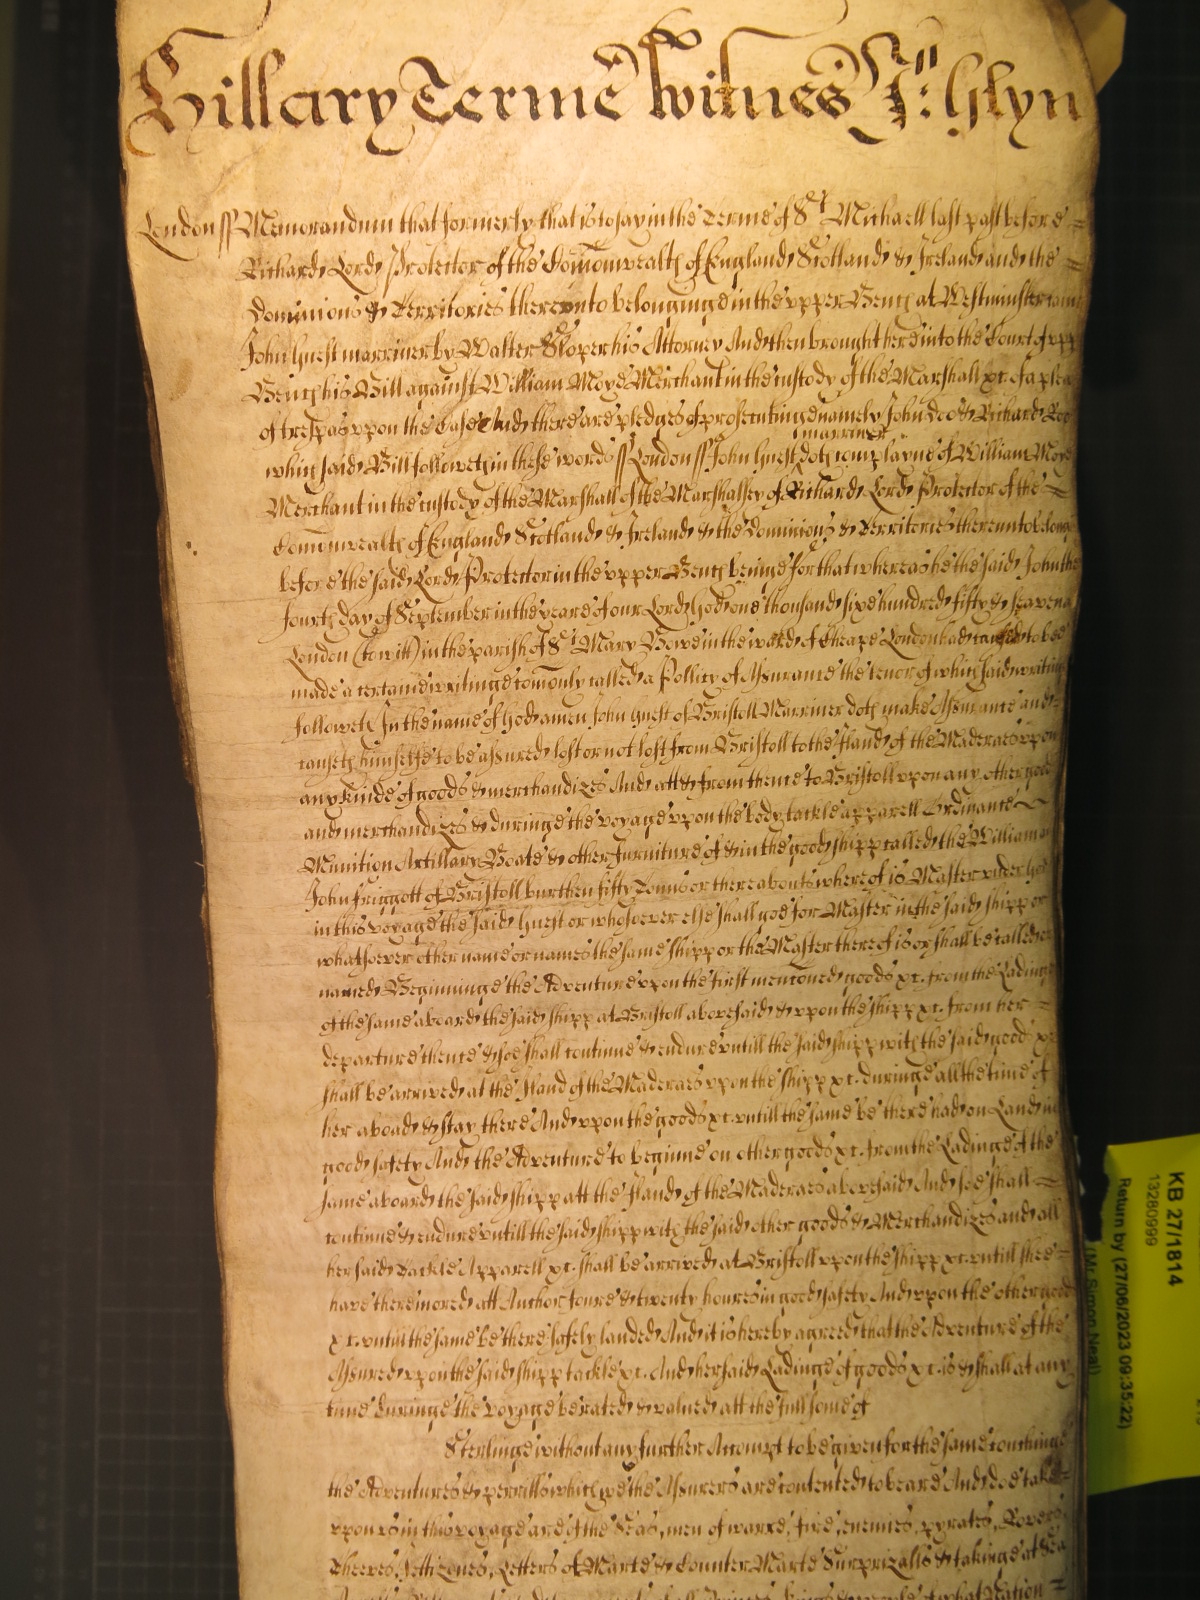 Hillary Terme Witnes Jo: Glyn
London ss Memorandum that formerly that is to say in the Terme of St Michaell last past before
Richard Lord Protector of the Comonwealth of England Scotland & Ireland and the
Dominions & Territories thereunto belonginge in the upper Bench at Westminster came
John Guest marriner by Walter Sloper his Attorney And then brought here into the Court of upp
Bench his Bill against William Moye Merchant in the custody of the Marshall xc. of a plea
of trespas upon the Case And there are pledges of prosecutinge namely John Doo & Richard Roo
marriner
which said Bill followeth in these words ss London ss John Guest doth complayne of William Moye
Merchant in the custody of the Marshall of the Marshalsey of Richard Lord Protector of the
Comonwealth of England Scotland & Ireland & the Dominions & Territories thereunto belong
before the said Lord Protector in the upper Bench beinge for that whereas he the said John the
fourth day of September in the yeare of our Lord God one thousand sixe hundred fifty & seaven at
London (to witt) in the parish of St Mary Bowe in the ward of Cheape London had caused to bee
made a certaine writinge comonly called a Pollicy of Assurance the tenor of which said writing
followeth In the name of God amen John Guest of Bristoll Marriner doth make Assurance and
causeth himselfe to be assured lost or not lost from Bristoll to the Iland of the Maderaes upon
any kinde of goods & merchandizes And att & from thence to Bristoll upon any other good
and merchandizes & duringe the voyage upon the body tackle apparell Ordinance
Munition Artillary Boate & other furniture of & in the good shipp called the William and
John friggott of Bristoll burthen fifty Tonns or thereabouts whereof is Master under God
in this voyage the said Guest or whosoever else shall goe for Master in the said shipp or
whatsoever other name or names the same shipp or the Master thereof is or shall be called or
named Beginninge the Adventure upon the first mencioned goods xc. from the Ladinge
of the same aboard the said shipp at Bristoll abovesaid & upon the shipp xc. from her
departure thence & soe shall continue & endure untill the said shipp with the said goods xc
shall be arrived at the Iland of the Maderaes upon the shipp xc. duringe all the time of
her aboad & stay there And upon the goods xc. untill the same be there had on Land in
good safety And the Adventure to beginne on other goods xc. from the Ladinge of the
same aboard the said shipp att the Iland of the Maderaes abovesaid And soe shall
continue & endure untill the said shipp with the said other goods & Merchandizes and all
her said Tackle Apparell xc. shall be arrived at Bristoll upon the shipp xc. untill shee
have there mored att Anchor foure & twenty houres in good safety And upon the other goods
xc. untill the same be there safely landed And it is hereby agreed that the Adventure of the
Assured upon the said shipp tackle xc. And her said Ladinge of goods xc. is & shall at any
time duringe the voyage be rated & valued att the full some of
Sterlinge without any further Accompt to be given for the same touchinge
the Adventures & perrills which we the Assurers are contented to beare And doe take
upon us in this voyage are of the Seas, men of warre, fire, enemies, pyrates, Rovers
Theeves, Jettizones, Letters of Marte & Counter Marte Surprizalls & takinge at Sea
KB 27/1814
13280999
Return by (27/06/2023 09:35:22)
(Mr Simon Neal)